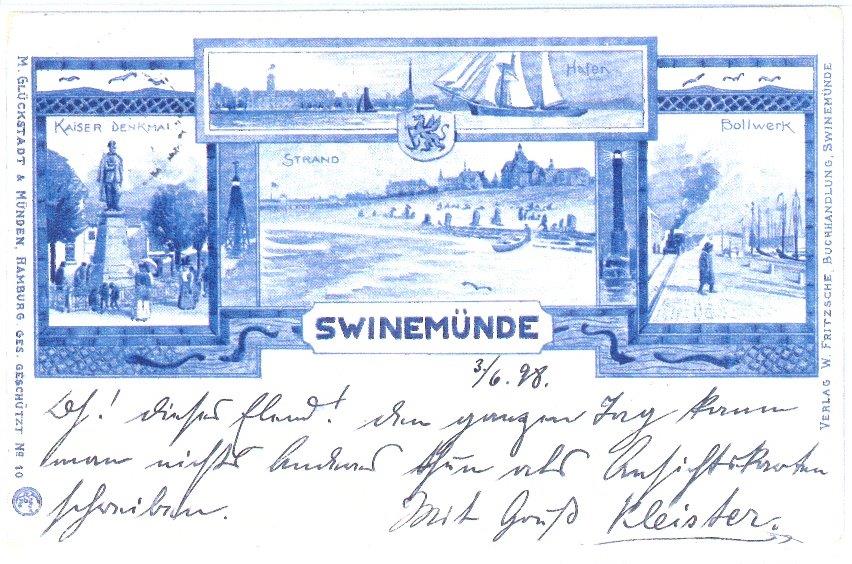 Hafen
KAISER DENKMAL
STRAND
Bollwerk
SWINEMÜNDE
M. GLÜCKSTADT & MÜNDEN, HAMBURG GES. GESCHÜTZT No 10
VERLAG W. FRITZSCHE, BUCHHANDLUNG, SWINEMÜNDE
3/6. 98.
Oh! dieses Elend! den ganzen Tag kann
man nichts Anderes thun als Ansichtskarten
schreiben.
Mit Gruß Kleister.